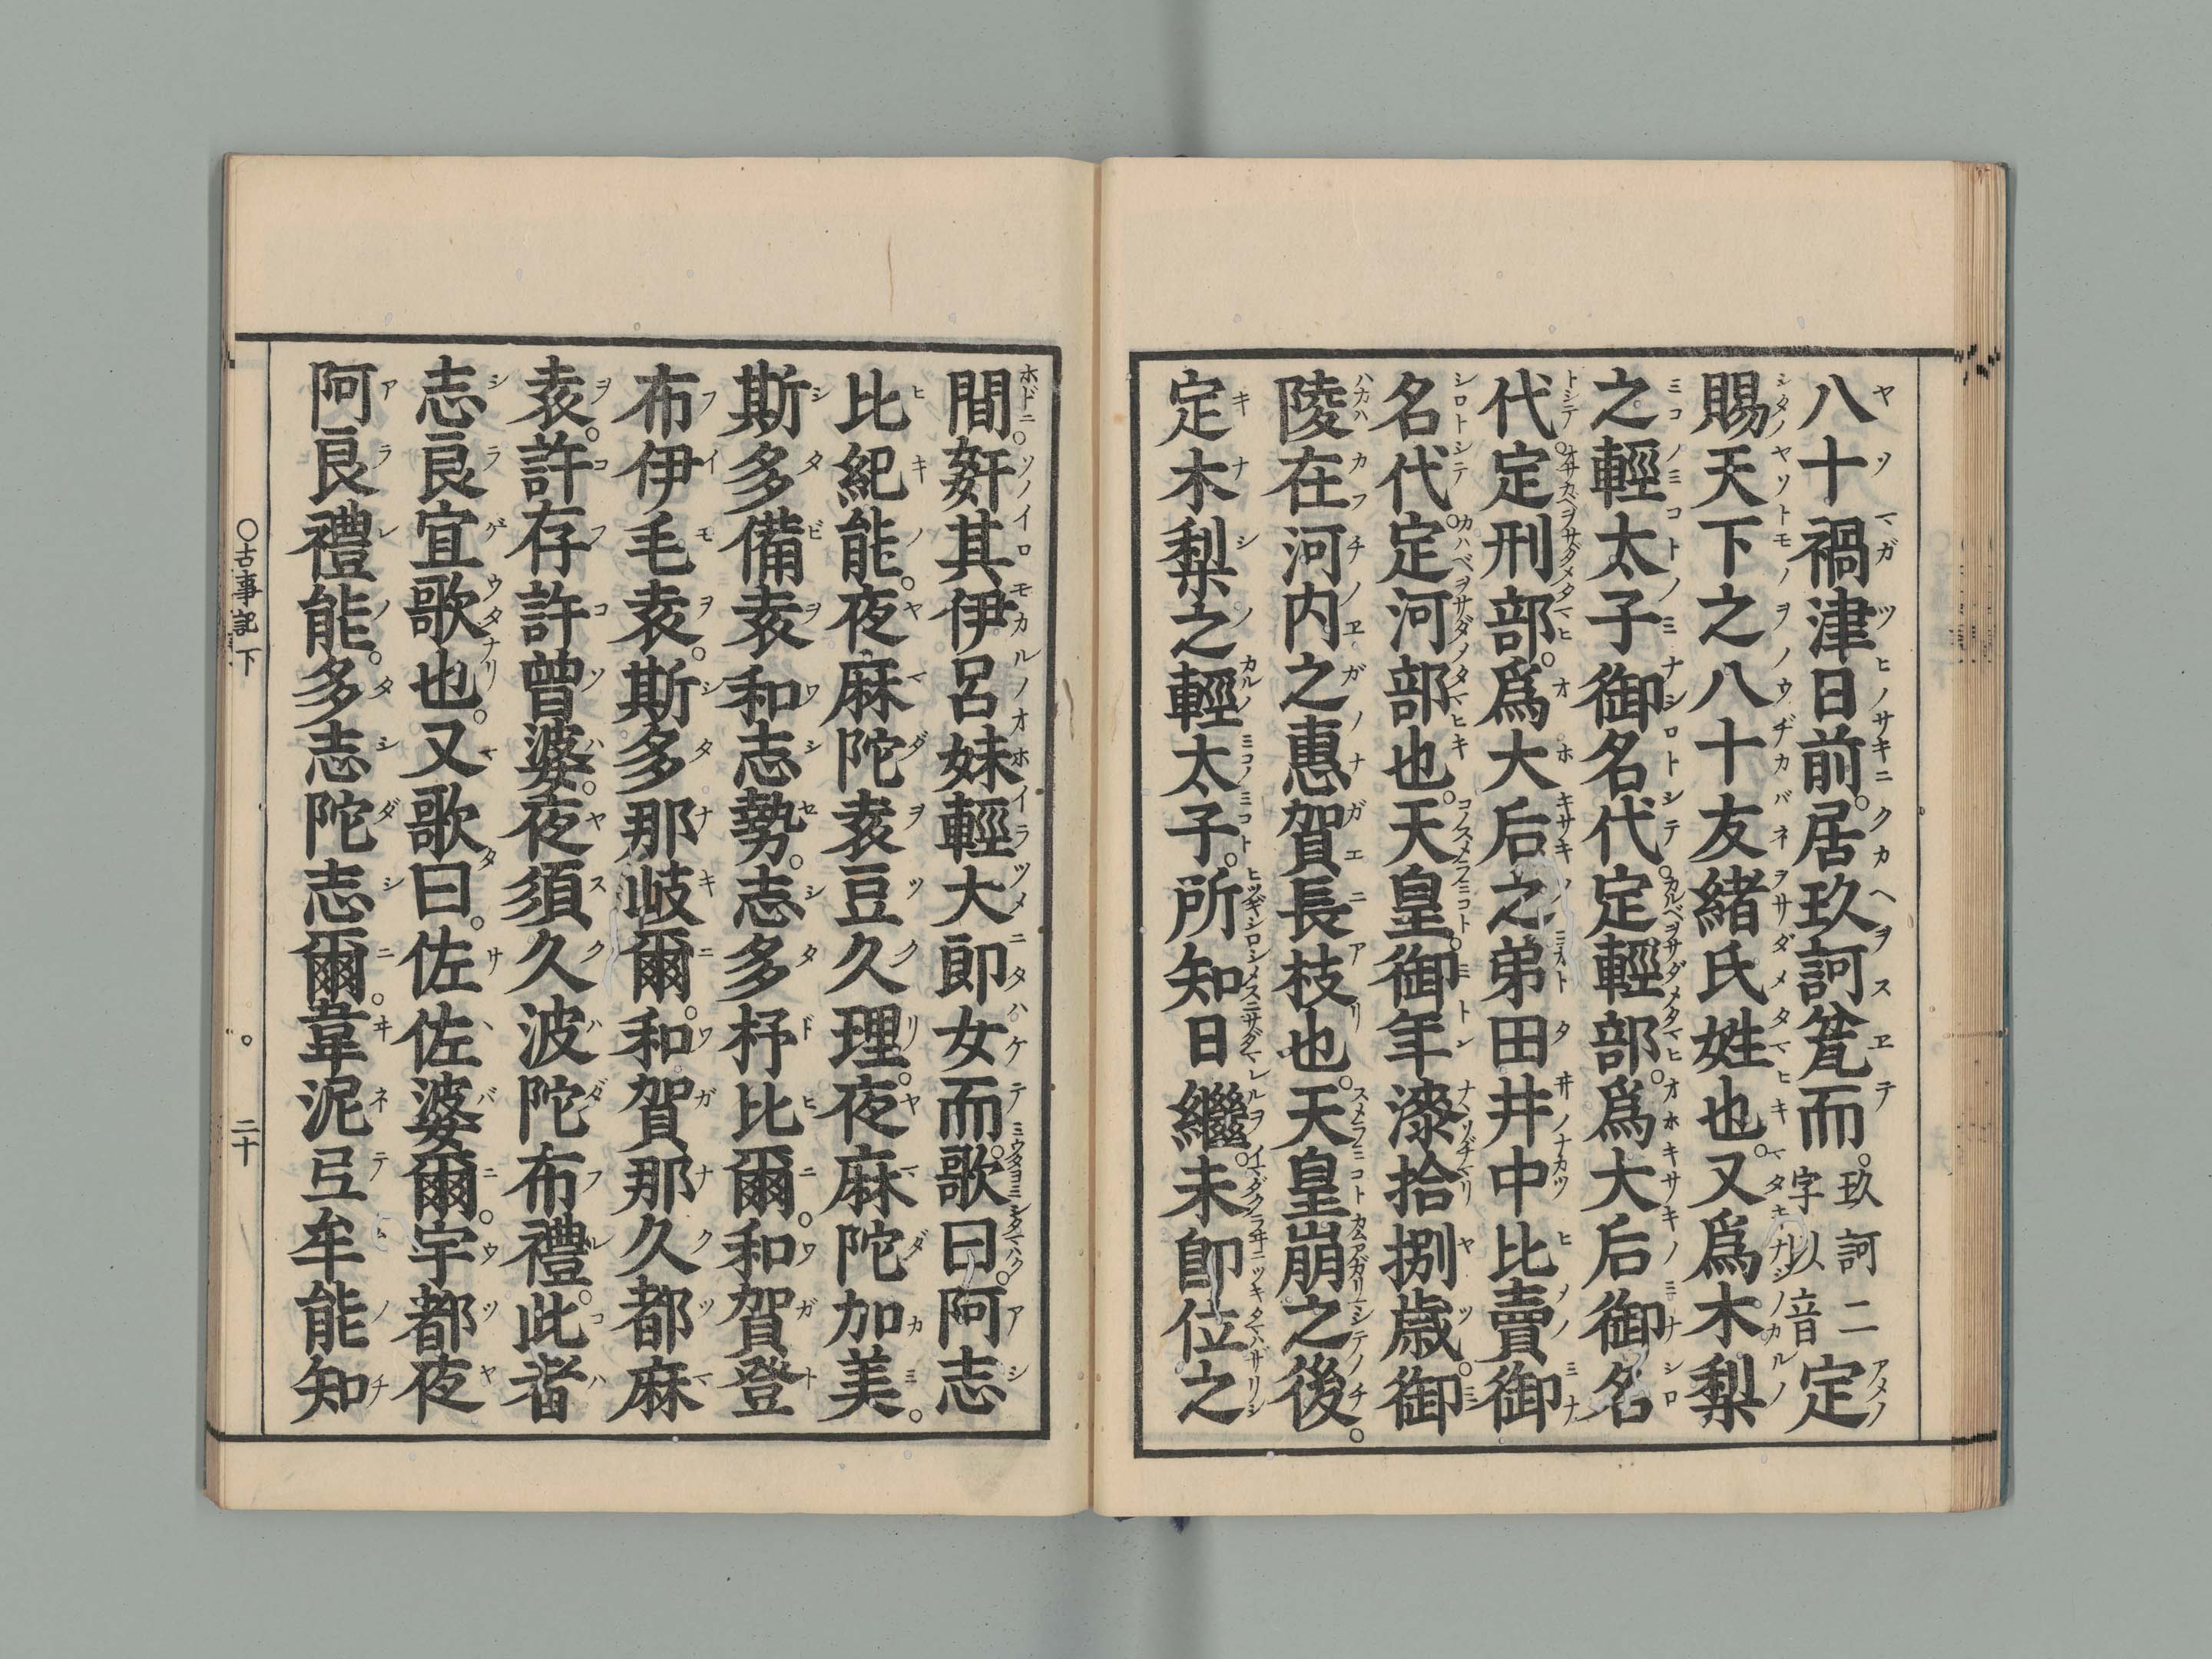 八十禍津日前。居玖訶瓮而。玖訶二字以音定
賜天下之八十友緒氏姓也。又爲木梨
之輕太子御名代。定輕部。爲大后御名
代。定刑部。爲大后之弟田井中比賣御
名代。定河部也。天皇。御年漆拾捌歲。御
陵在河内之惠賀長枝也。天皇崩之後。
定木梨之輕太子。所知日繼。未卽位之
間。姧其伊呂妹輕大郎女而。歌曰。阿志
比紀能。夜麻陀袁豆久理。夜麻陀加美。
斯多備袁和志勢。志多杼比爾。和賀登
布伊毛袁。斯多那岐爾。和賀那久都麻
袁。許存許曾婆。夜須久波陀布禮。此者
志良宜歌也。又歌曰。佐佐婆爾。宇都夜
阿良禮能。多志陀志爾。韋泥弖牟能知
○古事記下 。 二十